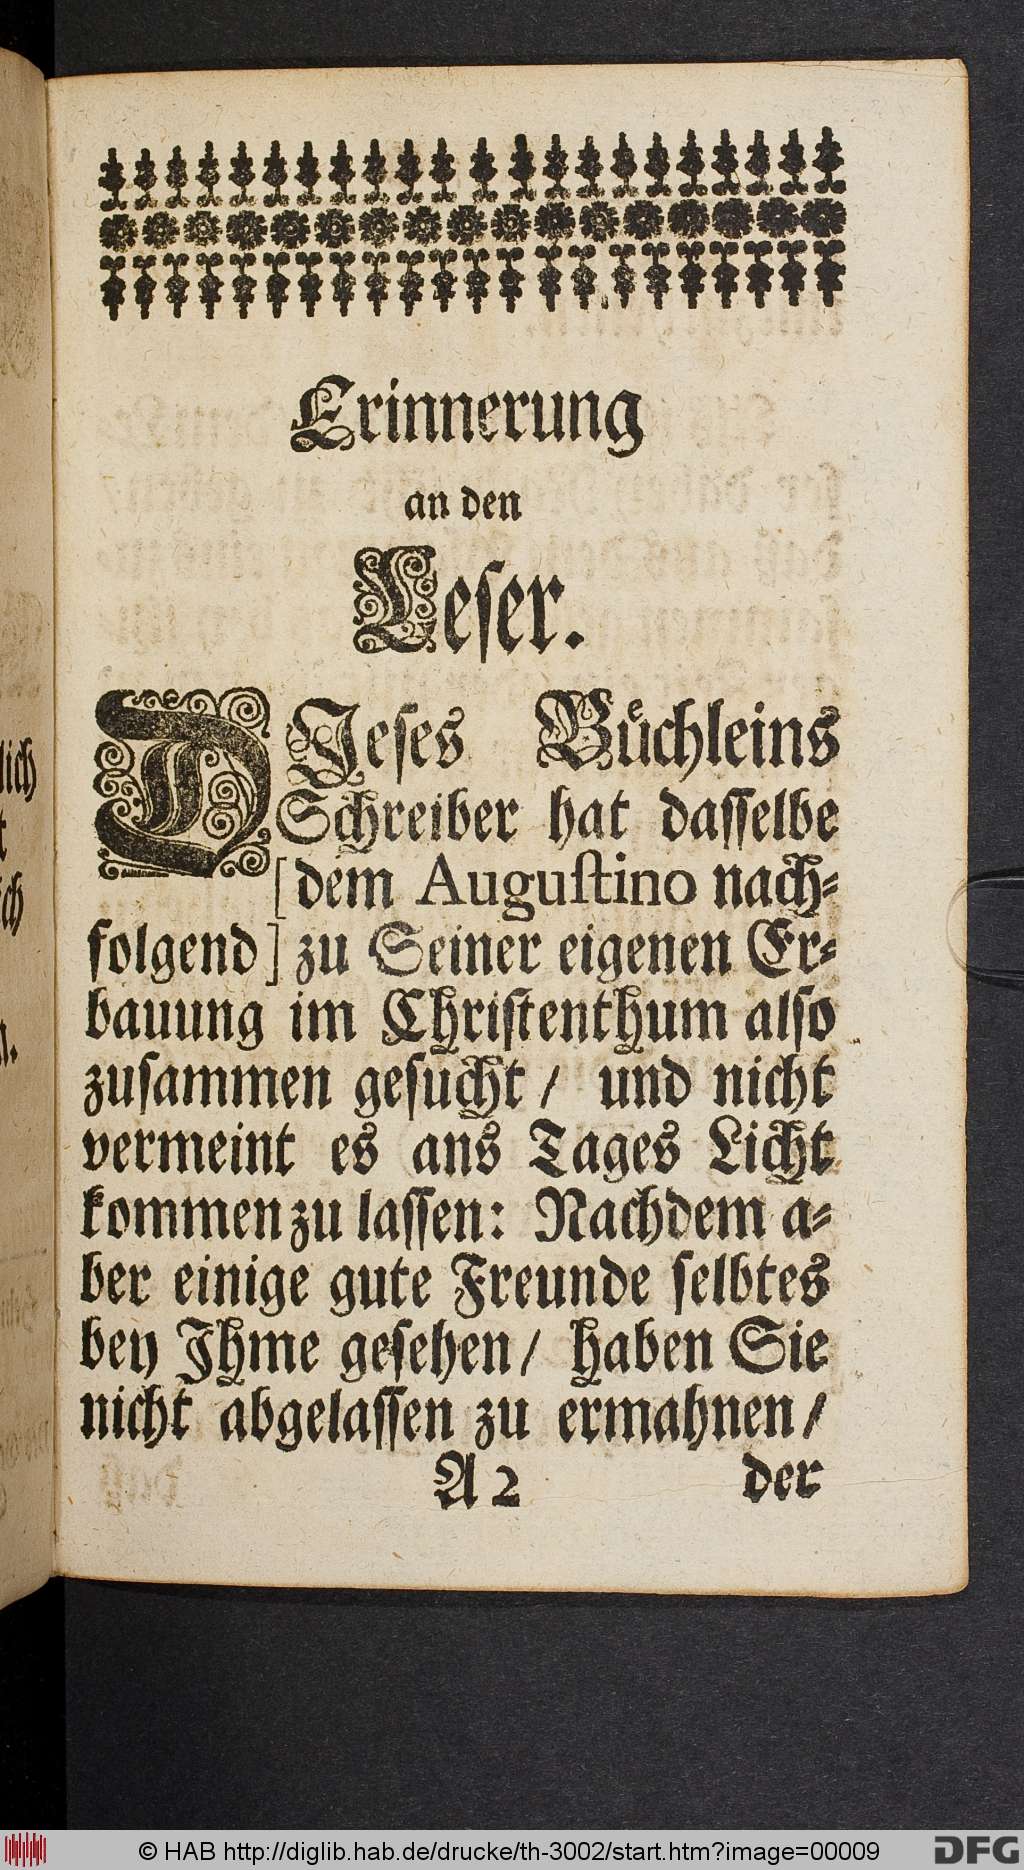 Erinnerung
an den
Leser.
DJeses Bůchleins
Schreiber hat dasselbe
[dem Augustino nach-
folgend] zu Seiner eigenen Er-
bauung im Christenthum also
zusammen gesucht / und nicht
vermeint es ans Tages Licht
kommen zu lassen: Nachdem a-
ber einige gute Freunde selbtes
bey Jhme gesehen / haben Sie
nicht abgelassen zu ermahnen /
A 2 der
© HAB http://diglib.hab.de/drucke/th-3002/start.htm?image=00009
DFG